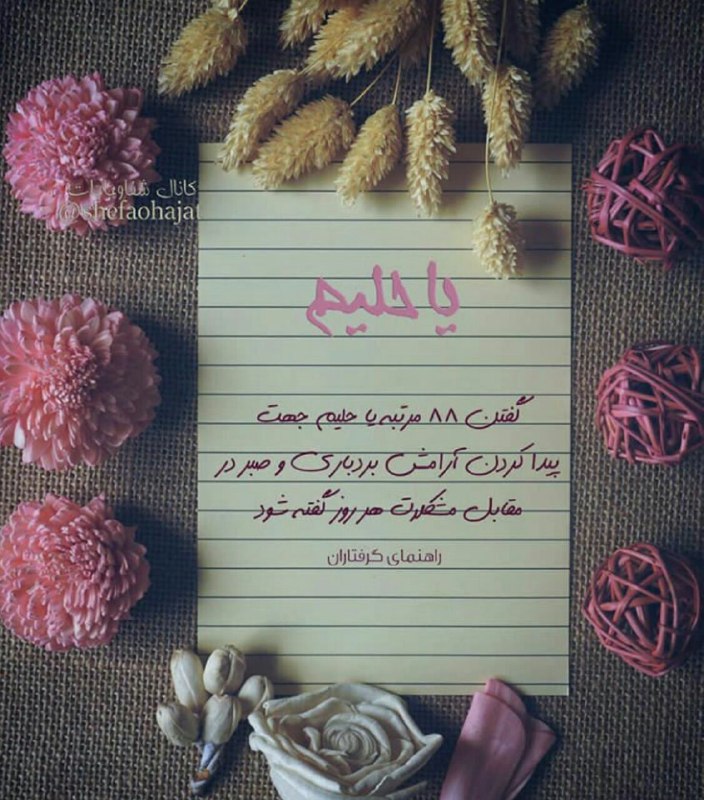 کانال شفاوحاجات
@shefaohajat
یا حلیم
گفتن ۸۸ مرتبه یا حلیم جهت
پیدا کردن آرامش بردباری و صبر در
مقابل مشکلات هر روز گفته شود
راهنمای گرفتاران